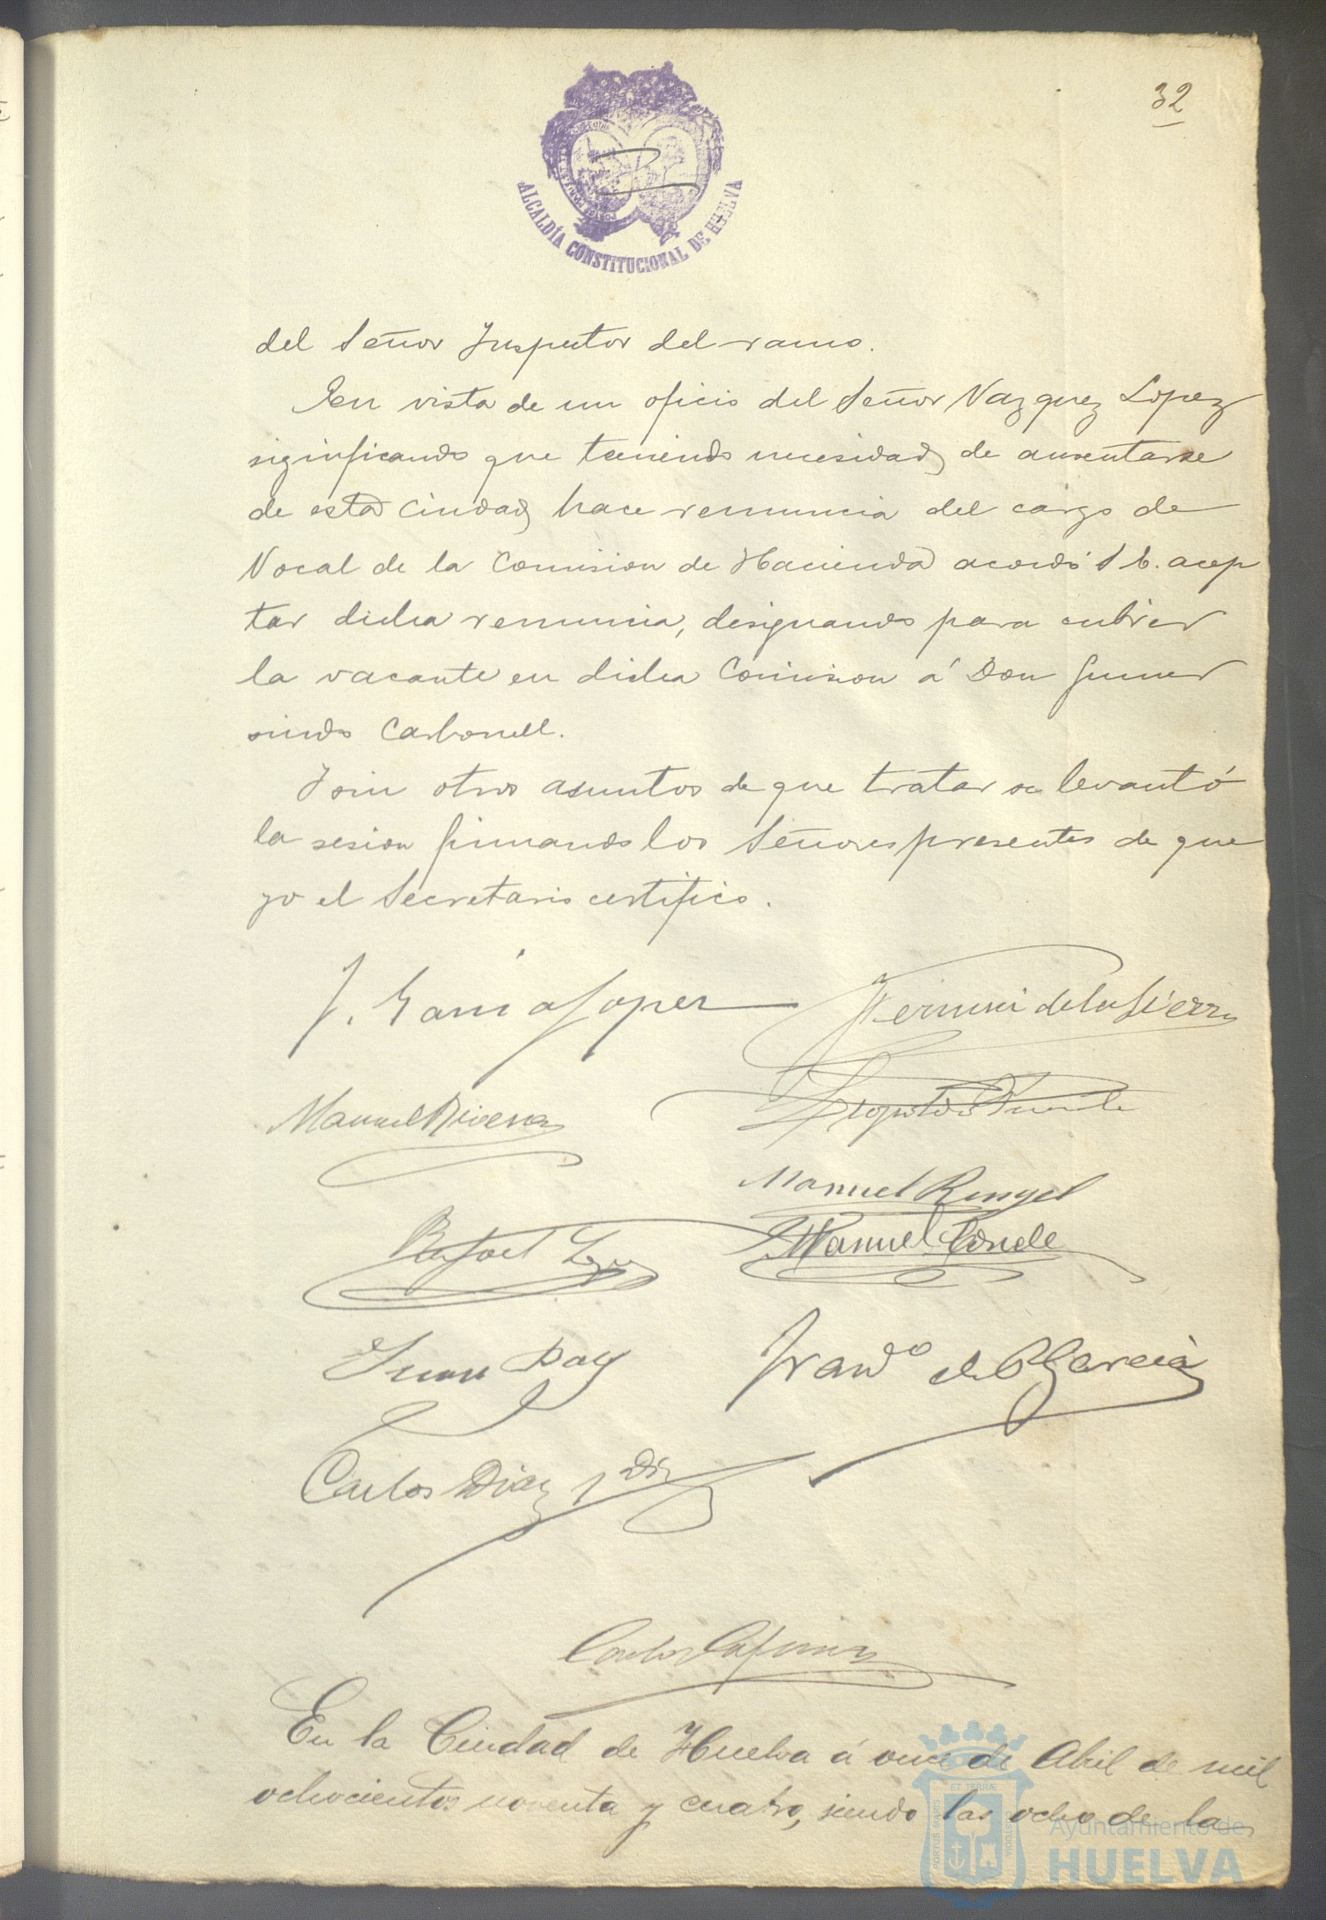 32
ALCALDÍA CONSTITUCIONAL DE HUELVA
del Señor Inspector del ramo.
En vista de un oficio del Señor Vazquez Lopez
significando que teniendo necesidad de ausentarse
de esta Ciudad, hace renuncia del cargo de
Vocal de la Comision de Hacienda acordó S. E. acep
tar dicha renuncia, designando para cubrir
la vacante en dicha Comision á Don Gumer
sindo Carbonell.
Y sin otros asuntos de que tratar se levantó
la sesion firmando los Señores presentes de que
yo el Secretario certifico.
J. Garcia Lopez
Fermin de la Sierra
Manuel Rivera
Leopoldo
Manuel Rengel
Rafael
Manuel Conde
Juan Day
Franco de P. Garcia
Carlos Diaz
Carlos
En la Ciudad de Huelva á once de Abril de mil
ochocientos noventa y cuatro, siendo las ocho de la
PORTUS MARIS ET TERRÆ CUSTODIA
Ayuntamiento de
HUELVA